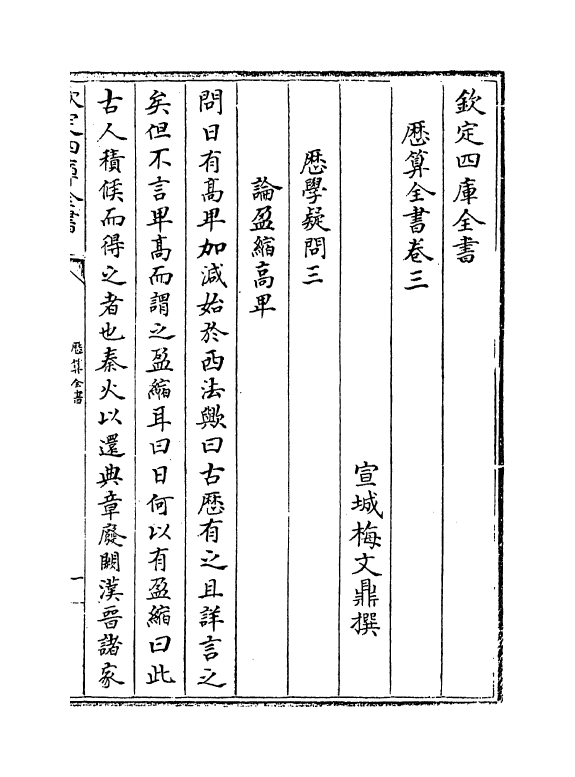 欽定四庫全書
厯算全書卷三
宣城梅文鼎撰
厯學疑問三
論盈縮高卑
問日有高卑加減始於西法歟曰古厯有之且詳言之
矣但不言卑高而謂之盈縮耳曰日何以有盈縮曰此
古人積候而得之者也秦火以還典章廢闕漢晉諸家
欽定四庫全書
厯算全書
一